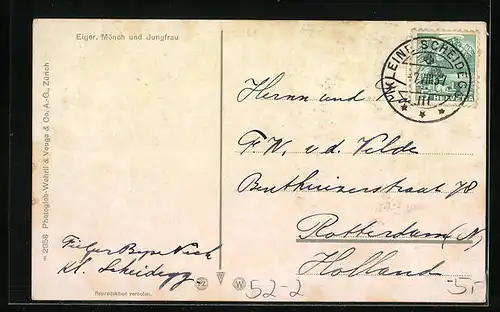 Eiger, Mönch und Jungfrau
KLEINE SCHEIDEGG
VIII.37
III
Herrn und
F. W. v. d. Velde
Benthuizerstraat 78
Rotterdam (N)
Holland
Kl. Scheidegg.
2058 Photoglob-Wehrli & Vouga & Co. A.-G., Zürich
Reproduktion verboten.
W
52-2
5,-